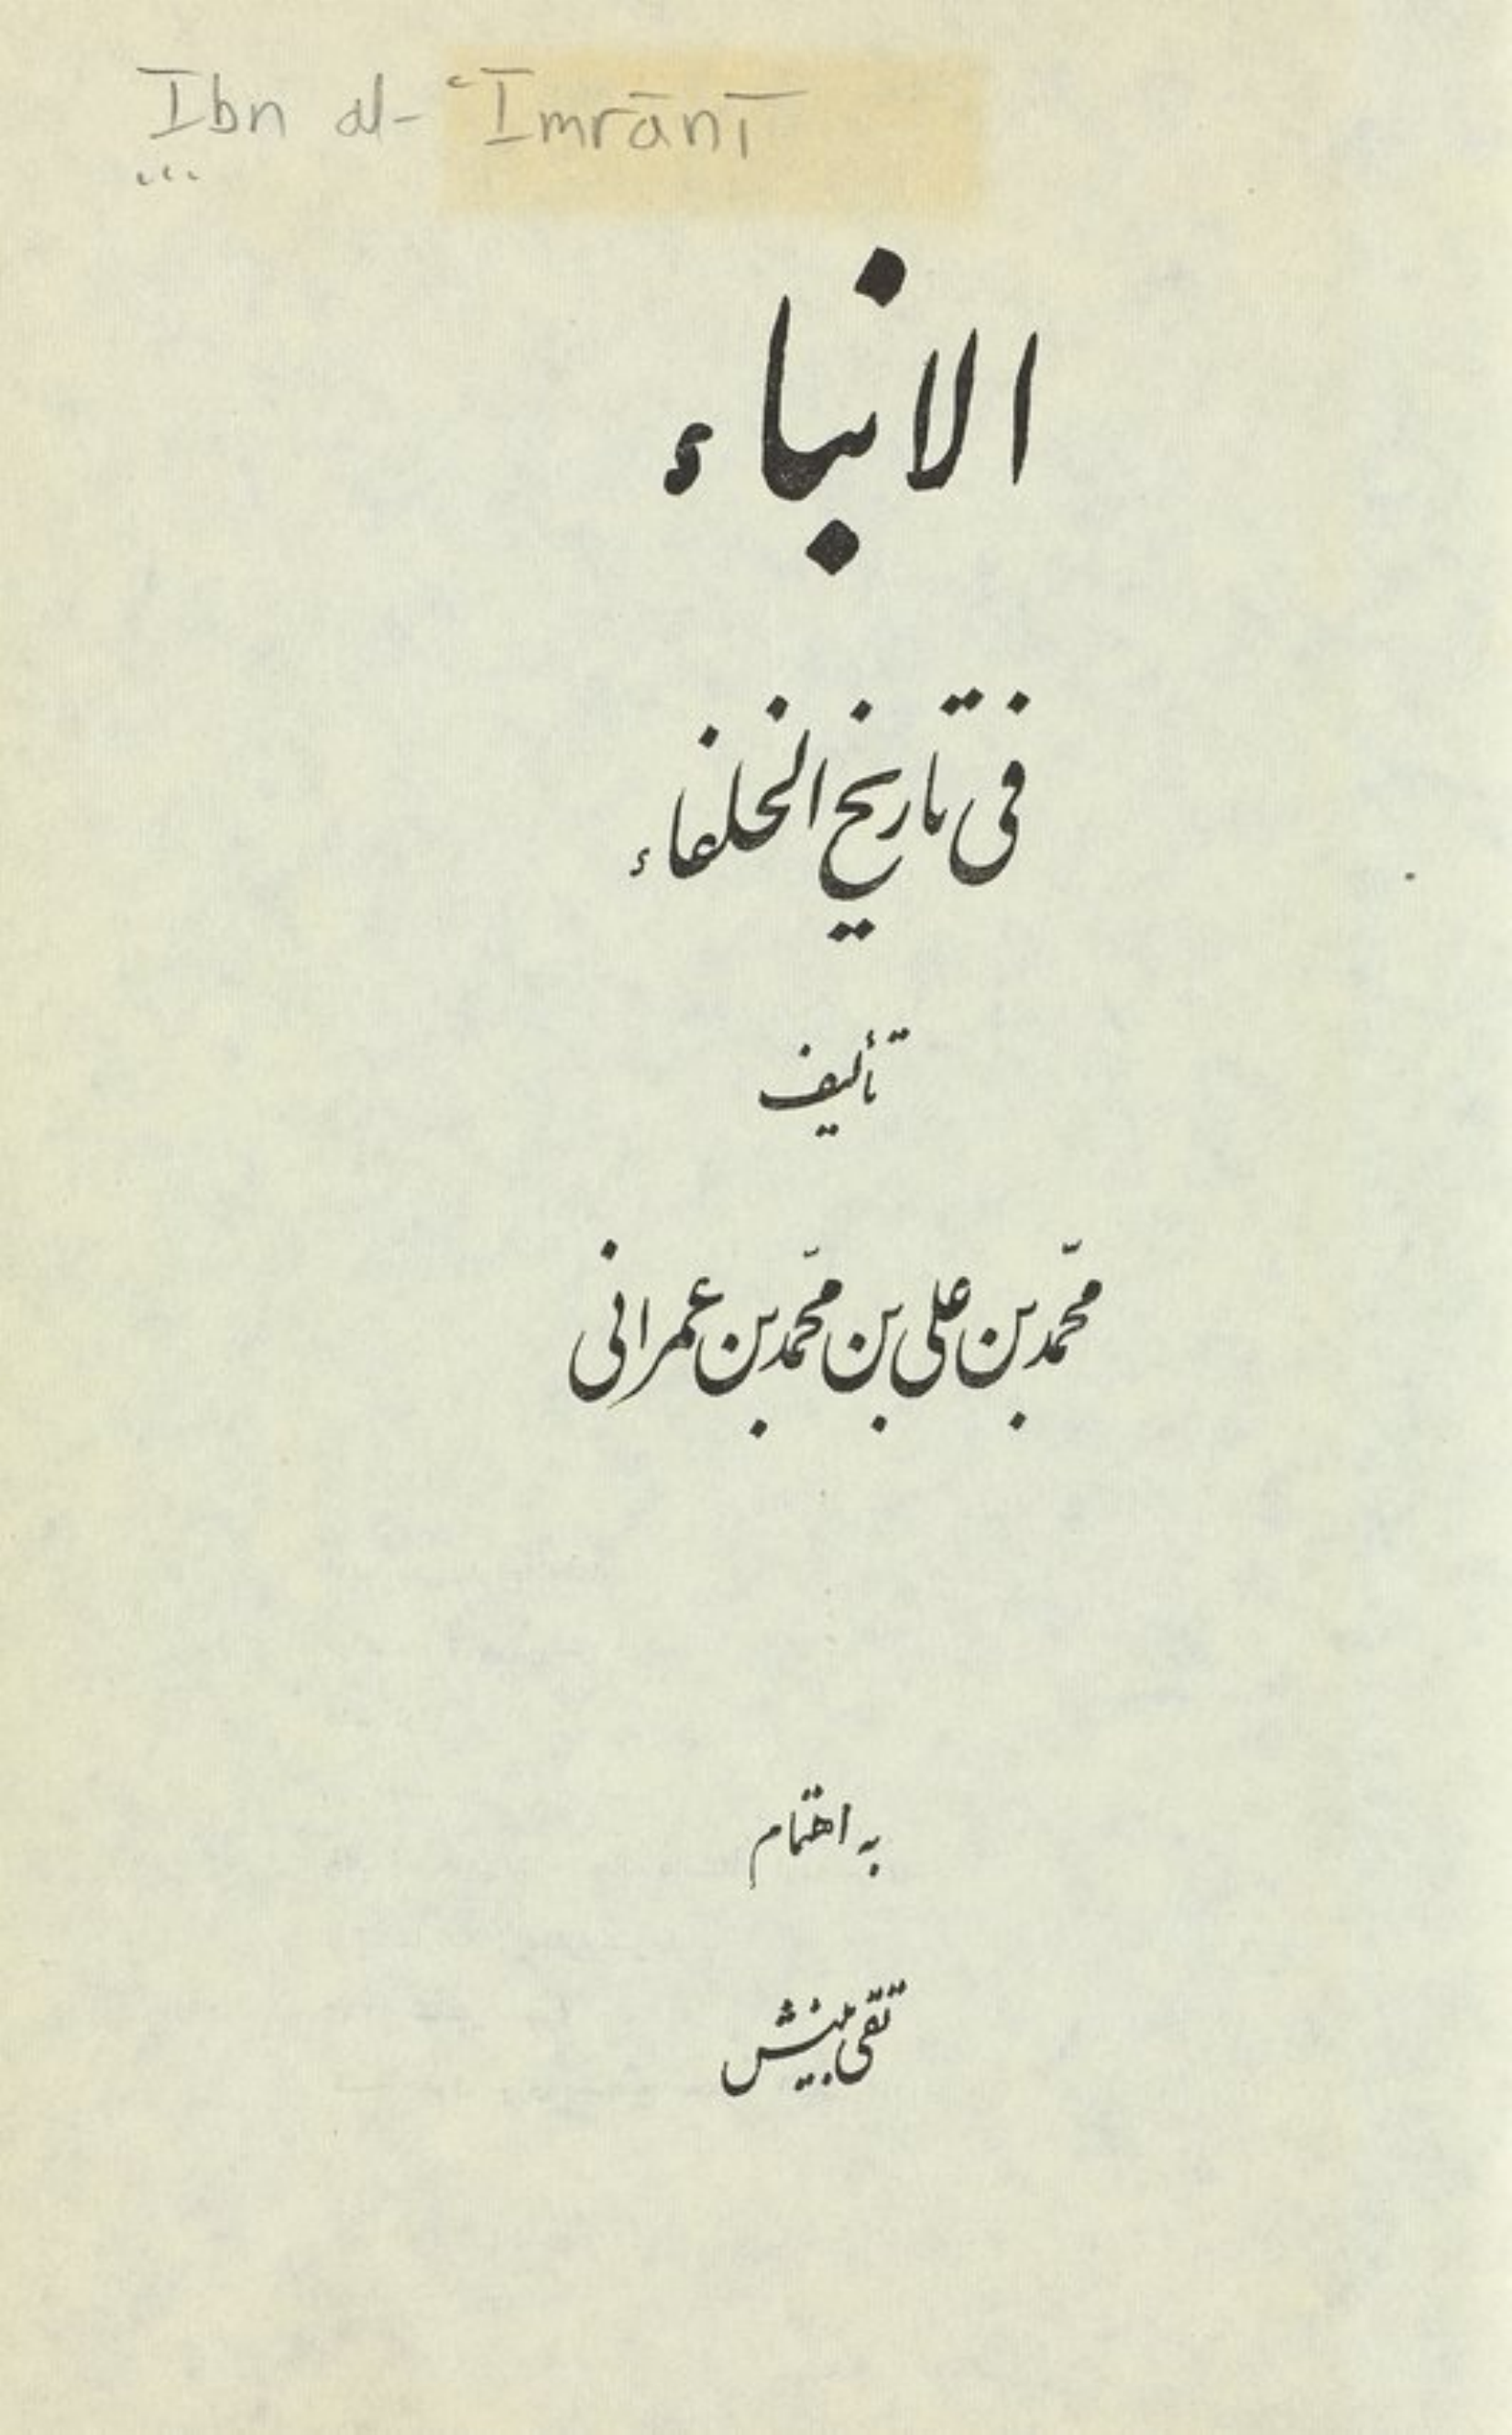 Ibn al-ʿImrānī
الانباء
فی تاریخ الخلفاء
تألیف
محمّد بن علی بن محمّد بن عمرانی
به اهتمام
تقی بینش